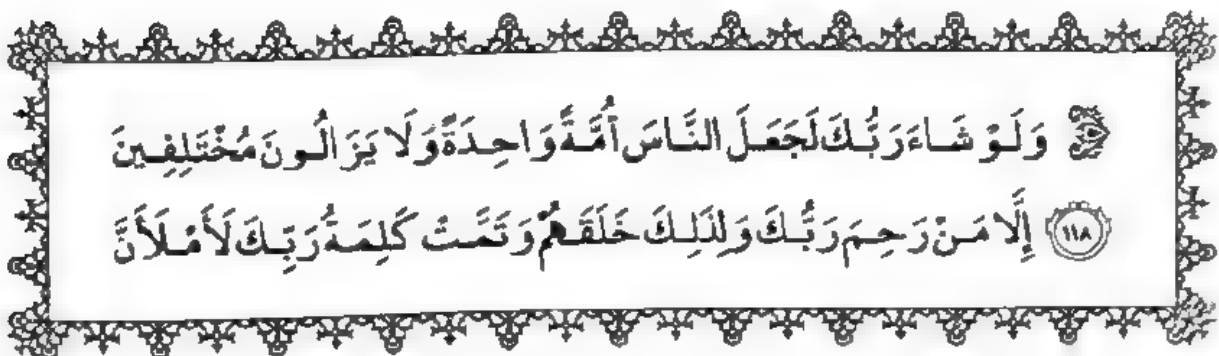 وَلَوْ شَاءَ رَبُّكَ لَجَعَلَ النَّاسَ أُمَّةً وَاحِدَةً وَلَا يَزَالُونَ مُخْتَلِفِينَ
١١٨ إِلَّا مَنْ رَحِمَ رَبُّكَ وَلِذَلِكَ خَلَقَهُمْ وَتَمَّتْ كَلِمَةُ رَبِّكَ لَأَمْلَأَنَّ